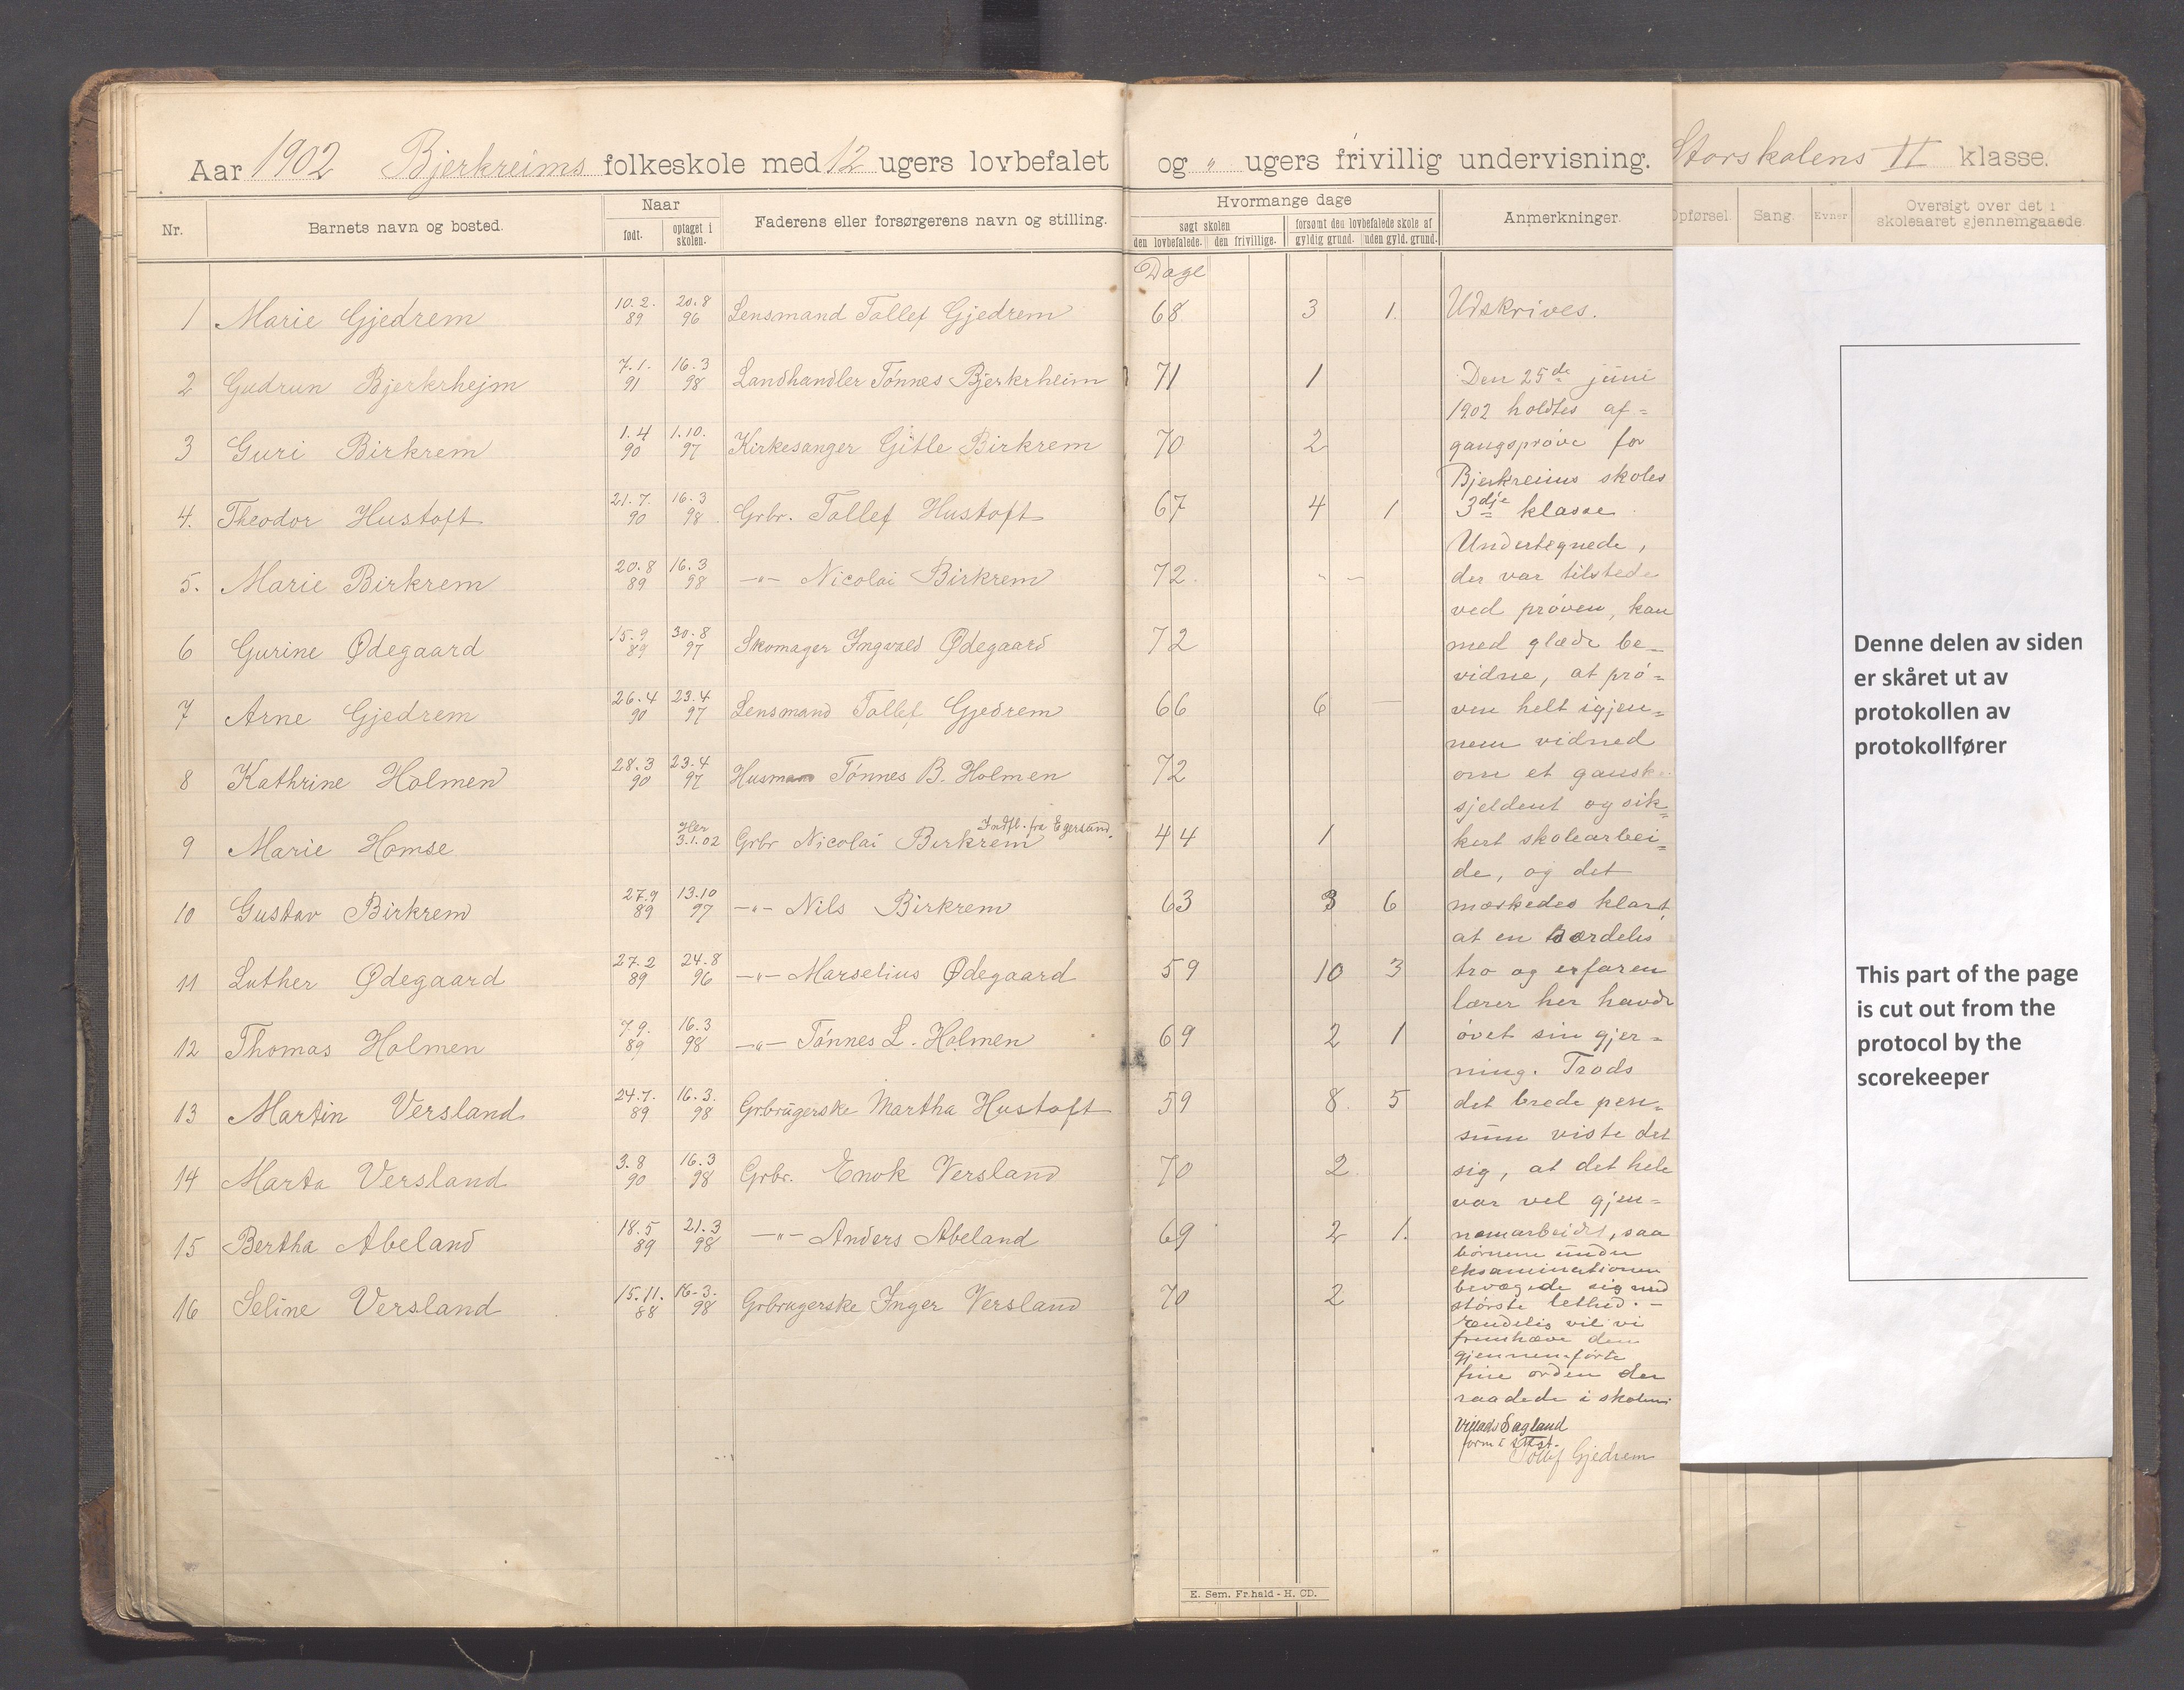 Aar 1902 Bjerkreims folkeskole med 12 ugers lovbefalet og " ugers frivillig undervisning. Storskolens II klasse.
Nr. Barnets navn og bosted. Naar født. optaget i skolen. Faderens eller forsørgerens navn og stilling. Hvormange dage søgt skolen den lovbefalede. den frivillige. forsømt den lovbefalede skole af gyldig grund. uden gyld. grund. Anmerkninger. Opførsel. Sang. Evner Oversigt over det i skoleaaret gjennemgaaede.
Dage
1 Marie Gjedrem 10.2. 89 20.8 96 Lensmand Tollef Gjedrem 68 3 1. Udskrives.
2 Gudrun Bjerkrhejm 7.1. 91 16.3 98 Landhandler Tönnes Bjerkrheim 71 1
3 Guri Birkrem 1.4 90 1.10. 97 Kirkesanger Gitle Birkrem 70 2
4. Theodor Hustoft 21.7. 90 16.3 98 Grbr. Tollef Hustoft 67 4 1
5. Marie Birkrem 20.8 89 16.3 98 —"— Nicolai Birkrem 72. " —
6 Gurine Ødegaard 15.9 89 30.8 97 Skomager Ingvald Ødegaard 72
7 Arne Gjedrem 26.4 90 23.4 97 Lensmand Tollef Gjedrem 66 6 —
8 Kathrine Holmen 28.3 90 23.4 97 Husmann Tönnes B. Holmen 72
9 Marie Homse Her 3.1.02 Grbr Nicolai Birkrem Indfl. fra Egersund. 44 1
10 Gustav Birkrem 27.9 89 13.10 97 —"— Nils Birkrem 63 3 6
11 Luther Ødegaard 27.2 89 24.8 96 —"— Marselius Ødegaard 59 10 3
12 Thomas Holmen 7.9. 89 16.3 98 —"— Tönnes L. Holmen 69 2 1
13 Martin Versland 24.7. 89 16.3. 98 Grbrugerske Martha Hustoft 59 8. 5
14 Marta Versland 3.8 90 16.3 98 Grbr. Enok Versland 70 2
15 Bertha Abeland 18.5 89 21.3 98 —"— Anders Abeland 69 2 1.
16 Seline Versland 15.11. 88 16.3. 98 Grbrugerske Inger Versland 70 2
Den 25de juni
1902 holdtes af=
gangsprøve for
Bjerkreims skoles
3dje klasse.
Undertegnede,
der var tilstede
ved prøven, kan
med glæde be-
vidne, at prö=
ven helt igjen=
nem vidned
om et ganske
sjeldent og sik=
kert skolearbei=
de, og det
mærkedes klart,
at en særdeles
tro og erfaren
lærer her havde
övet sin gjer=
ning. Trods
det brede pen=
sum viste det
sig, at det hele
var vel gjen=
nemarbeidet, saa
börnene under
eksaminationen
bevægede sig med
störste lethed. —
Endelig vil vi
fremhæve den
gjennemförte
fine orden der
raadede i skolen
Sagland
Tollef Gjedrem
E. Sem. Fr.hald - H. CD.
Denne delen av siden
er skåret ut av
protokollen av
protokollfører
This part of the page
is cut out from the
protocol by the
scorekeeper